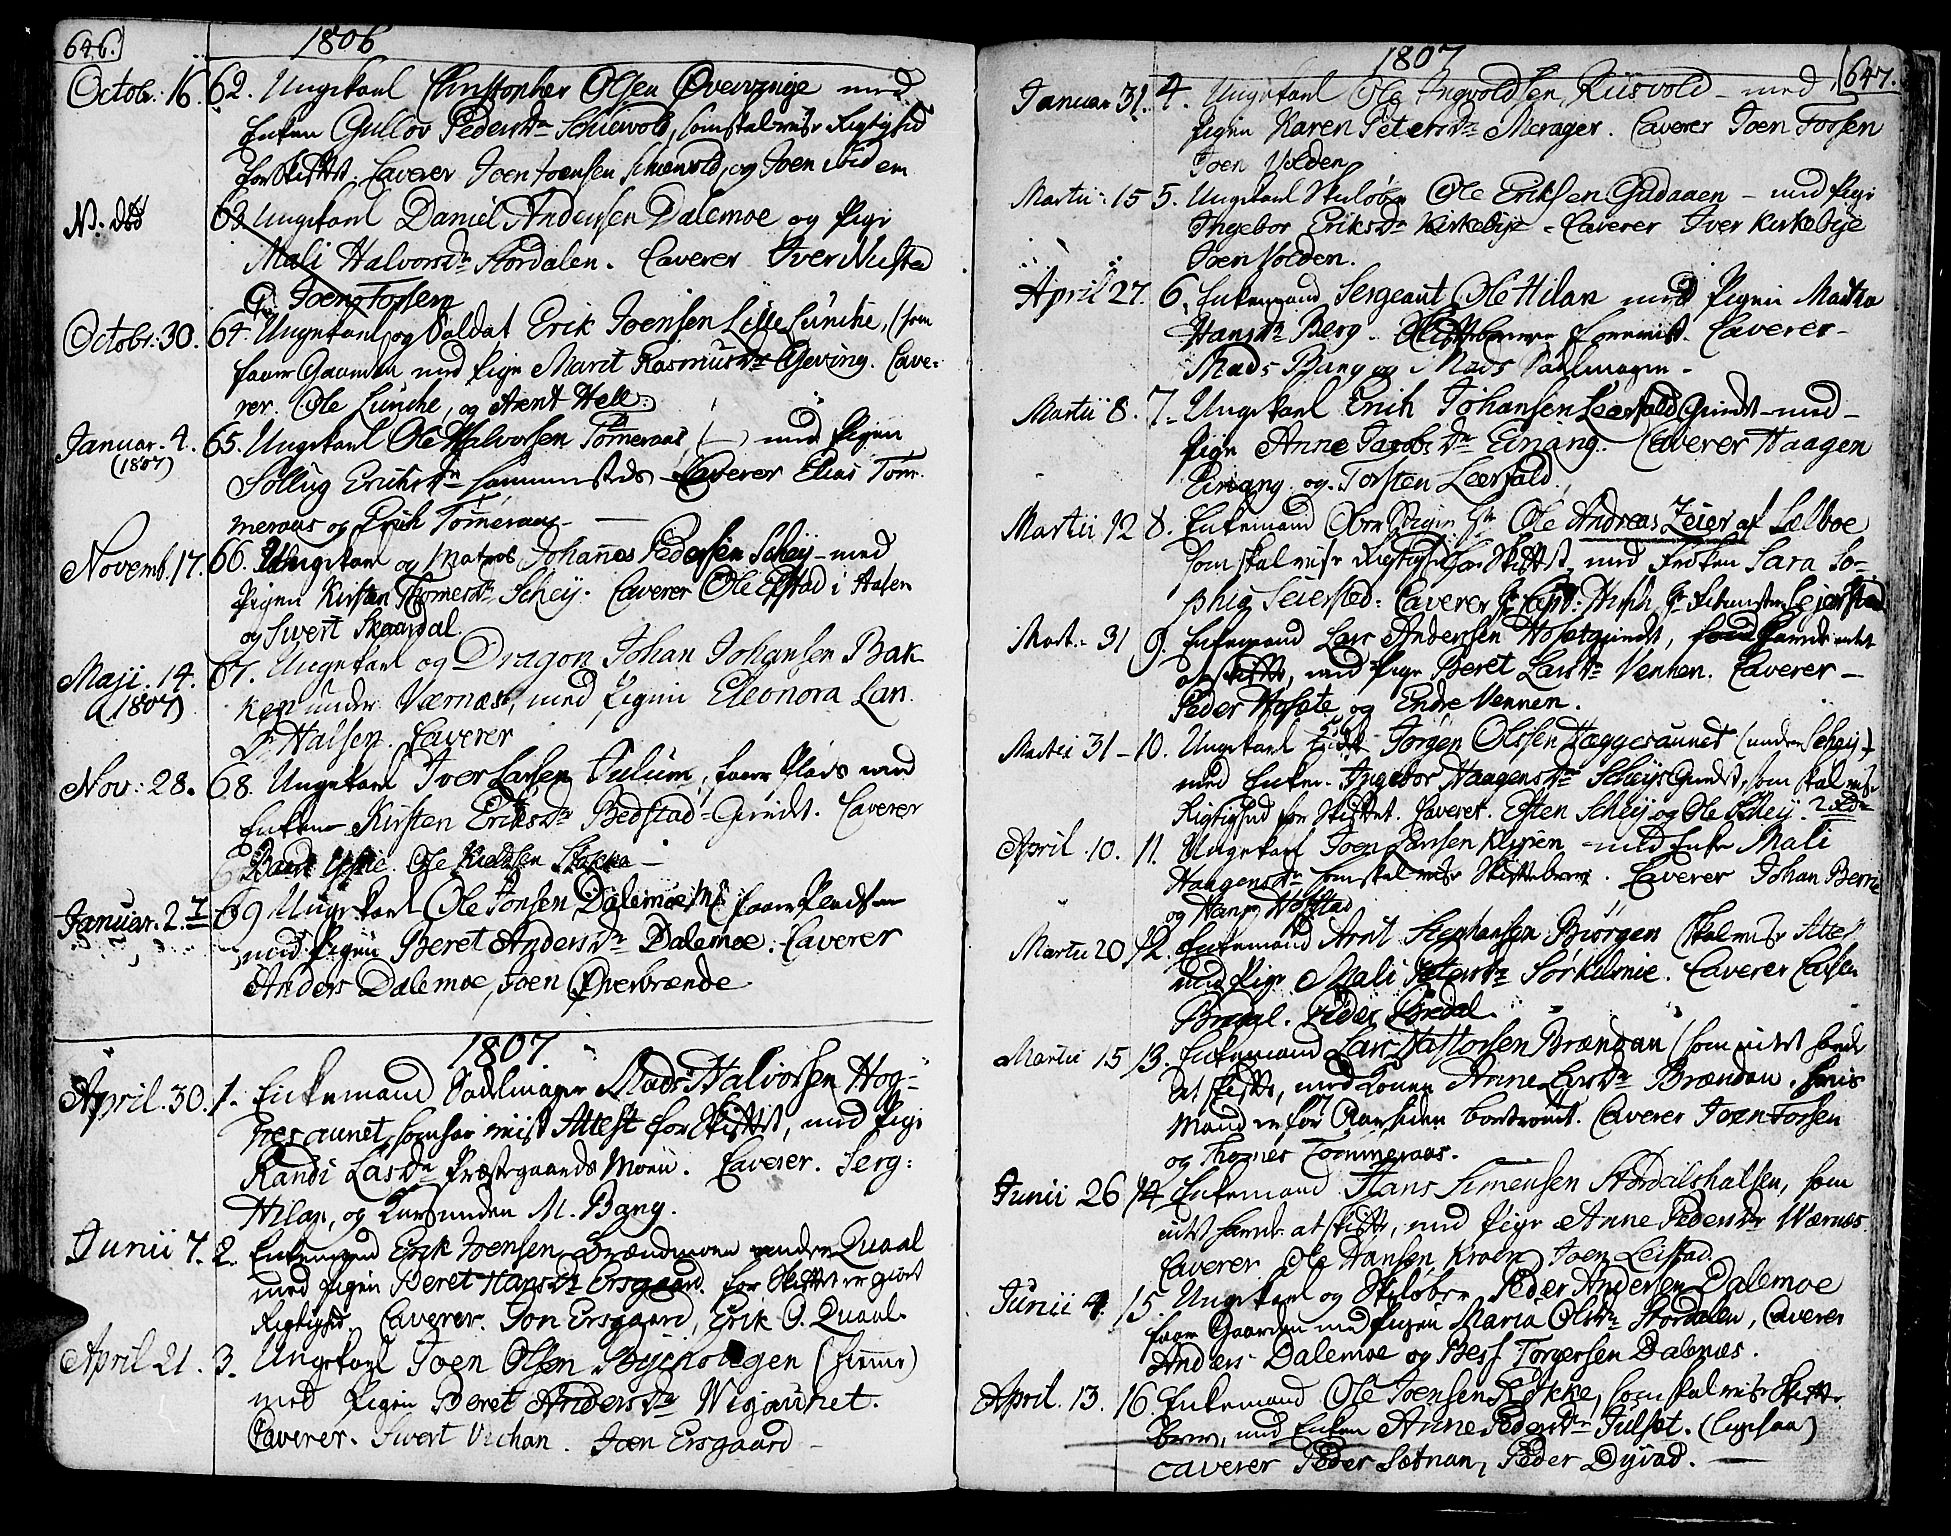 646.
1806
Octobr: 16. 62. Ungekarl Christopher Olsen Øvervinge med
Enken Gullov Pedersdr Schiewold, som skal vise Rigtighed
for Skiftet. Caverer Joen Joensen Schiewold, og Joen ibidem
N. 63. Ungekarl Daniel Andersen Dalemoe og Pige
Mali Halvorsdr Stordalen. Caverer Iver Nusted
Og Joen Forsem
Octobr: 30. 64. Ungekarl og Soldat Erik Joensen Lille Lunche, (som
faaer Gaarden med Pige Marit Rasmusdr Geving. Cave-
rer. Ole Lunche, og Arent Hell.
Januar. 4. (1807) 65. Ungekarl Ole Halvorsen Tømeraas (—) med Pigen
Sollug Eriksdr sammesteds. Caverer Elias Tøm
meraas og Erich Tømeraas
Novemb. 17. 66. Ungekarl og Matros Johannes Pedersen Scheij - med
Pigen Kirsten Thomesdr Scheij. Caverer Ole Elstad i Aasen
og Sivert Skaardal.
Maji. 14. (1807) 67. Ungekarl og Dragon Johan Johansen Bak
ken under Værnæs, med Pigen Eleonora Lan
Dr Halsen. Caverer
Nov: 28. 68. Ungekarl Iver Larsen Julum, faaer Plads med
Enken Kirsten Eriksdr Bedstad-Grindt. Caverer
Baart Ole Stokka -
Januar. 2 69 Ungekarl Ole Jonsen Dalemoe faaer Pladsen
med Pigen Beret Andersdr Dalemoe. Caverer
Anders Dalemoe, Joen Øverbrænde
1807
April. 30. 1. Enkemand Sadelmager Mads Halvorsen Hog-
nesaunet, som har vist Attest for Skiftet, med Pige
Randi Larsdr Præstegaards Moen. Caverer. Serg:
Hilan, og M. Bang.
Junii 7. 2. Enkemand Erik Joensen Brændmoen under Quaal
med Pigen Beret Hansdr Ersgaard. for Skiftet er giort
Rigtighed. Caverer. Jon Ersgaard, Erik O. Quaal.
April 21. 3. Ungekarl Joen Olsen Byeholegen
med Pigen Beret Andersdr Wigaunet.
Caverer. Sivert Vichan. Joen Ersgaard -
1807
647.
Januar 31. 4. Ungekarl Ole Ingvoldsen Riisvold - med
Pigen Karen Petersdr Merager. Caverer Joen Forsem
Joen Volden
Martii 15 5. Ungekarl Skiløber Ole Eriksen Gudaaen - med Pige
Ingebor Eriksdr Kirkebye - Caverer Iver Kirkebye
Joen Volden.
April 27. 6. Enkemand Sergeant Ole Hilan med Pigen Martha
Hansdr Berg. Skiftebrev forevist. Caverer -
Mads Bang og Mads Sadelmager -
Martii 8. 7. Ungekarl Erich Johansen Leerfald Grindt - med -
Pige Anne Jacobsdr Einang. Caverer Haagen
Einang og Torsten Leerfald.
Martii 12 8. Enkemand Ole Andreas Zeier af Sælboe
som skal vise Rigtighed for Skiftet, med Frøken Sara So-
phie Seiersted: Caverer Hr Capt: Hirsch, Hr Seiersted
Mart: 31 9. Enkemand Lars Andersen Hofsetgrindt, havde intet
at skifte, med Pige Beret Larsdr Vennen. Caverer -
Peder Hofsete og Endre Vennen.
Martii 31 - 10. Ungekarl Jørgen Olssen Hæggesaunet (under Scheij)
med Enken Ingebor Haagensdr Scheijs Grindt, som skal vise
Rigtighed for Skiftet. Caverer. Esten Scheij og Ole Scheij.
April. 10. 11. Ungekarl Joen Jensen Klipen - med Enke Mali
Haagensdr som skal vise Skiftebrev. Caverer Johan Berre
og Hans Hofstad
Martii 20 12. Enkemand Arnt Stephansen Biørgen skal vise Attest
med Pige Mali Petersdr Sørkilmie. Caverer
Peder
Martii 15 13. Enkemand Lars Hastorsen Brændan (som intet havde
at skifte, med Konen Anne Larsdr Brændan, hvis
Mand er for 7 Aar siden bortrømt. Caverer Joen Forsem
og Thomes Tommeraas.
Junii 26 14. Enkemand Hans Simensen Stordalshalsen, som
intet havde at skifte, med Pige Anne Pedersdr Wærnæs.
Caverer Ole Hansen Kroen, Joen Leistad.
Junii 4. 15. Ungekarl og Skiløber Peder Andersen Dalemoe
faaer Gaarden med Pigen Maria Olsdr Stordalen, Caverer
Anders Dalemoe og Bess Torgersen Dalenæs.
April. 13. 16 Enkemand Ole Joensen Løkke, som skal vise Skifte
brev, med Enken Anne Pedersdr Julset. (Ligesaa)
Caverer Peder Sætnan, Peder Dyvad.